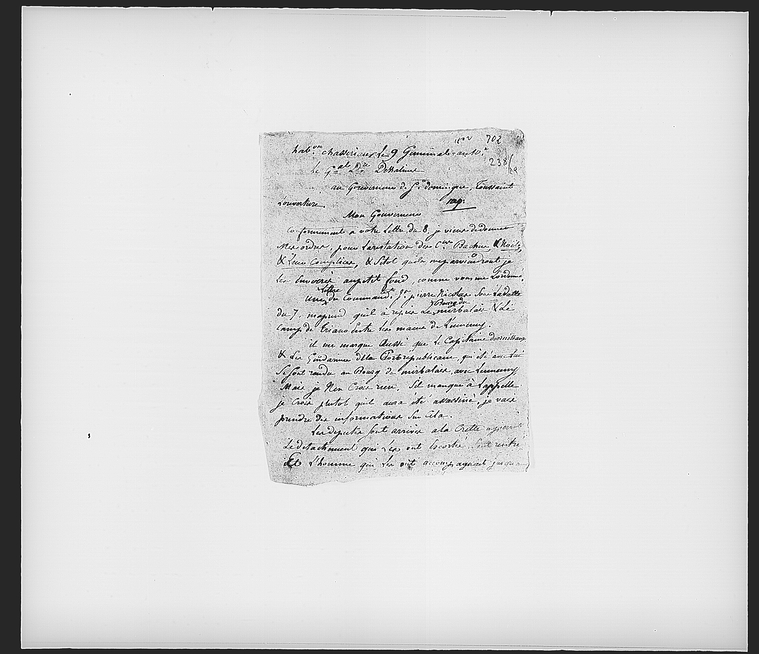 1802 702
238/
hab.on chasseriaux le 9 Germinal an 10
le G.al D.on Dessaline
au Gouverneur de S.t domingue, Toussaint
Louverture
Mon Gouverneur
Conformement a votre Lettre du 8, je viens de donner
Mes ordres, pour l'arestation des C.ens Bachus & Noël,
& Leurs Complices, & Sitot quils me parviendront je
les Enverrai au petit fond, comme vous me Lordonnez.
une Lettre du Command.t J.n pierre Nicolas Sous la datte
du 7, m'aprend qu'il a repris Le Bourg du mirbalais & Le
Camp de trianos sur Les mains de
il me marque Aussi que Le Capitaine
& Les Gendarmes de la Port republicain, qui été avec lui
Se sont rendu au Bourg du mirbalais, avec Lennemy
Mais je N'en Crois rien. S'il manque à L'appelle
je Crois plutot quil aura été assassiné, je vais
prendre des informations Sur Cela.
Les deputés Sont arrivés a la Crette
Le detachement qui Les ont Escorté Sont rentré
Et L'homme qui Les ont accompagnait jusqu'a